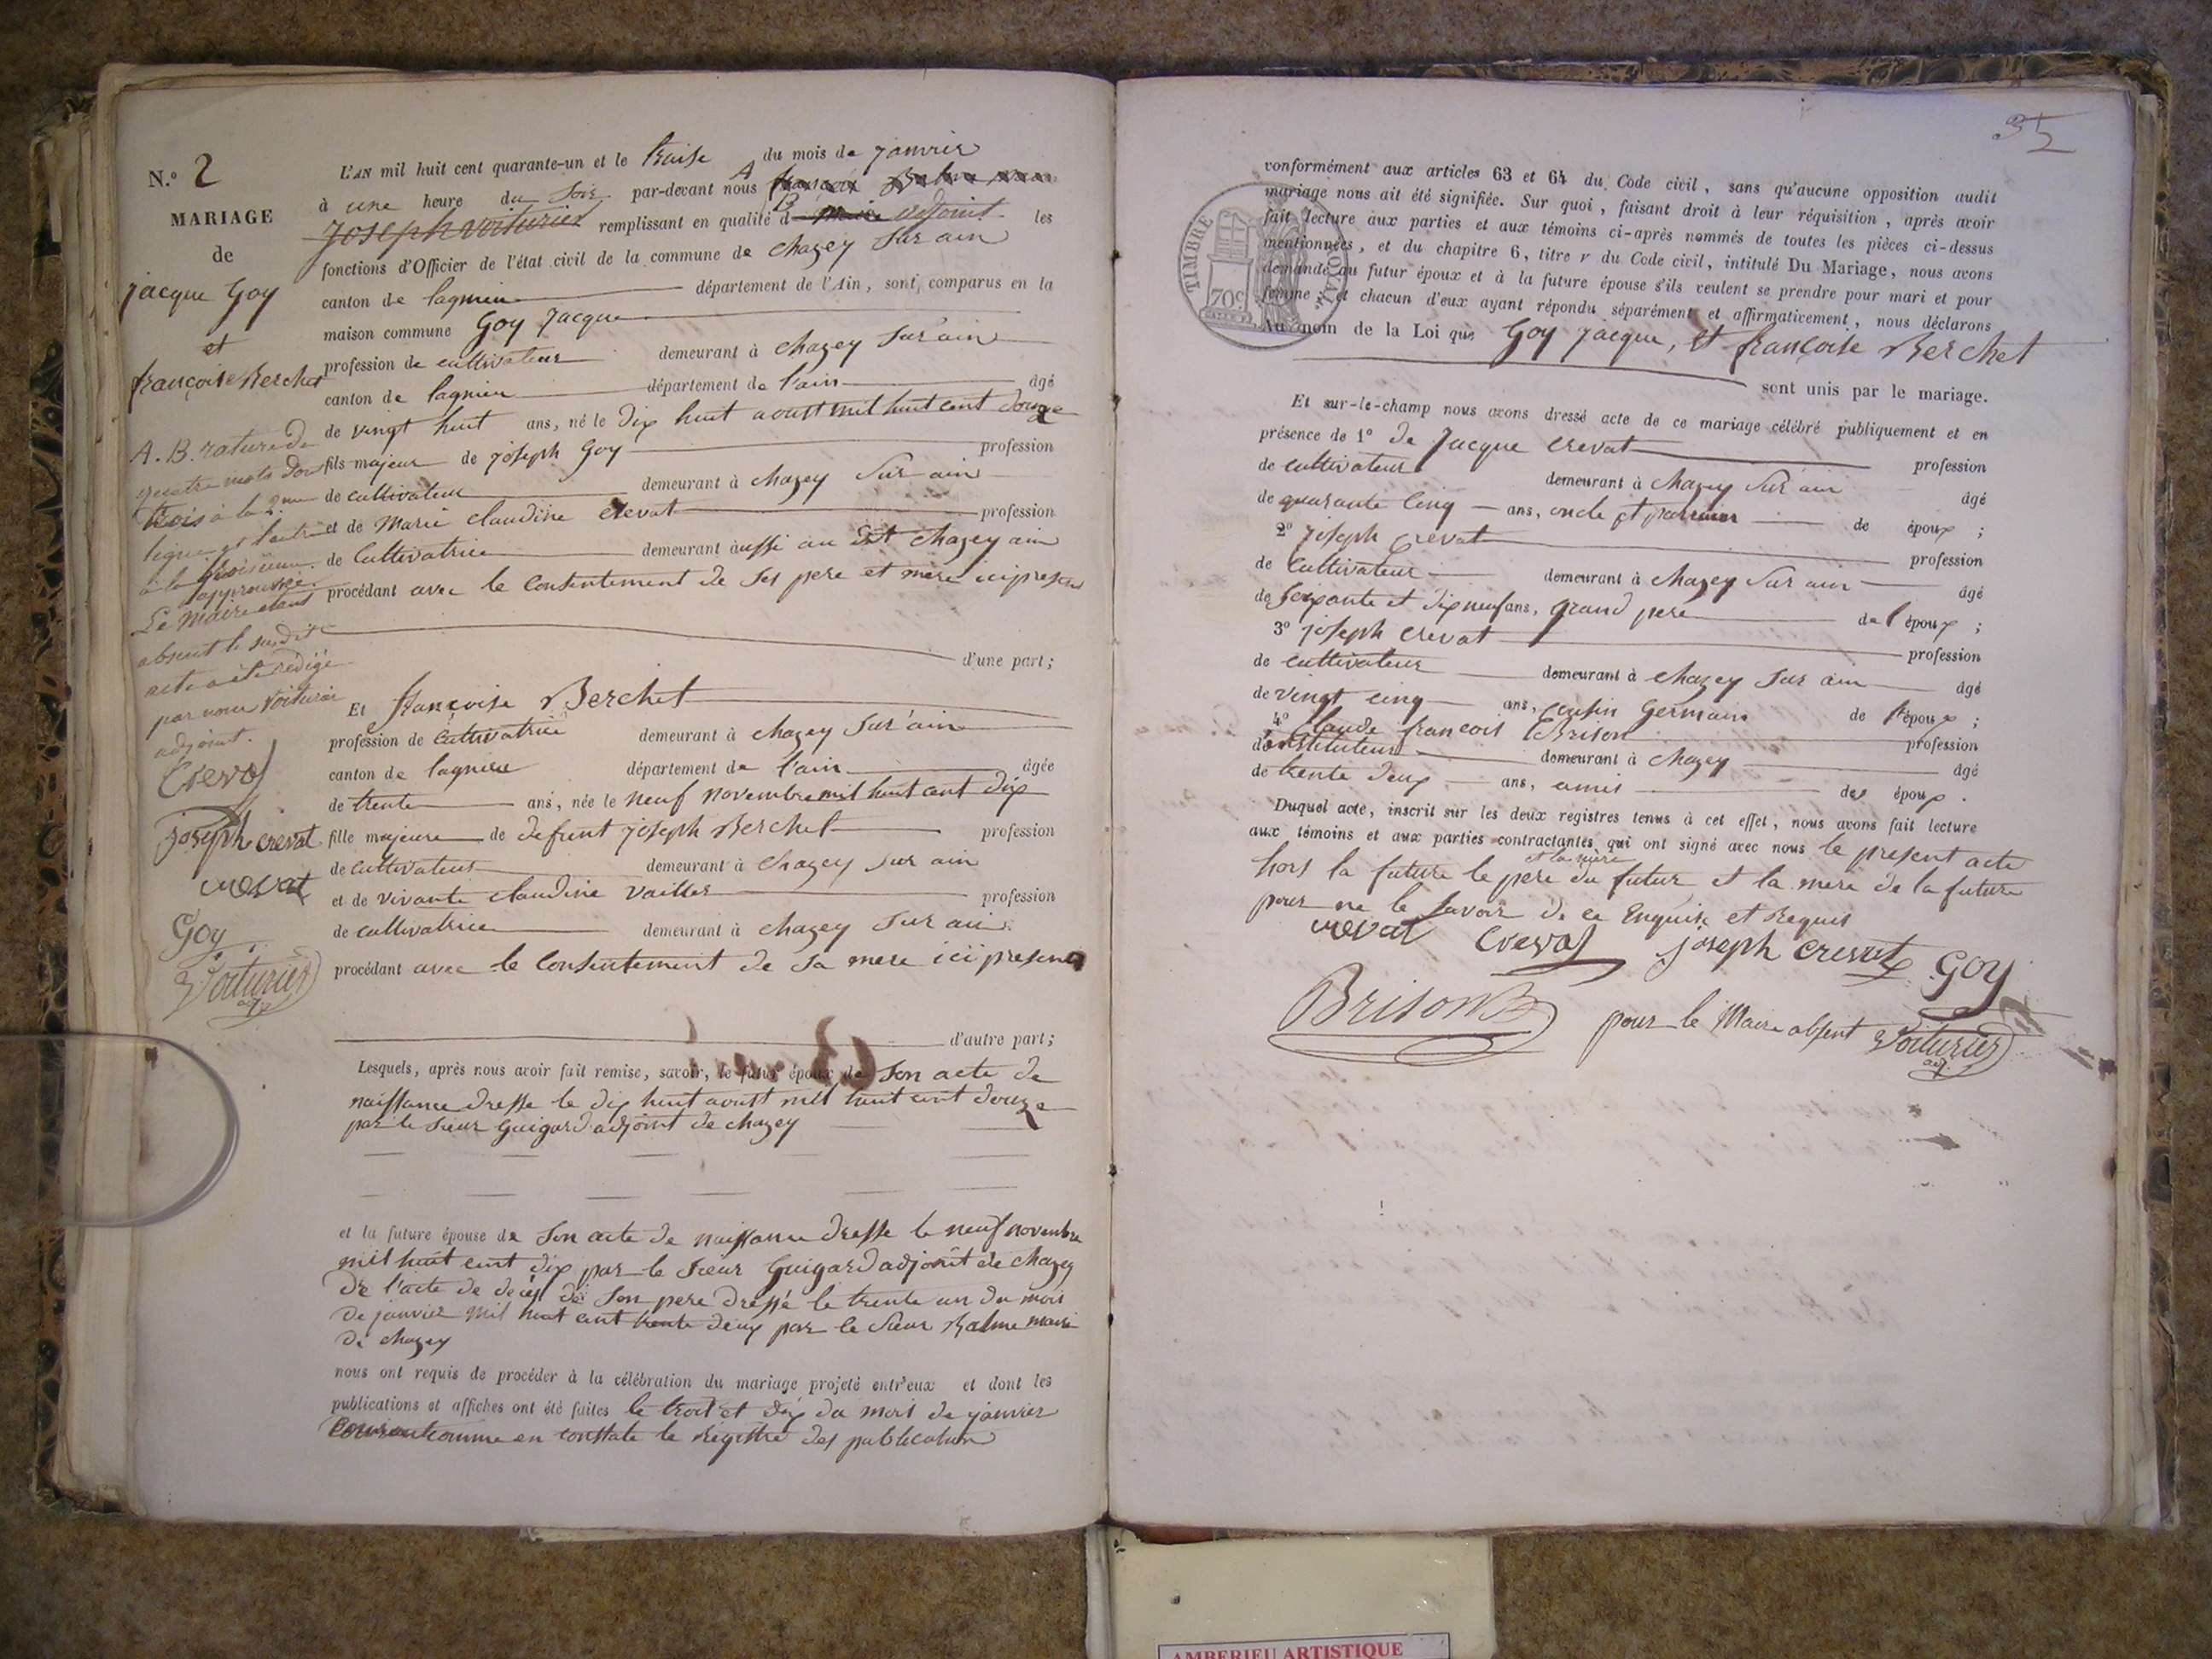 N.o 2
MARIAGE
de
jacque Goy
et
françoise Berchet
A. B. rature de
quatre mots dont
trois à la 2me
ligne et l'autre
à la troisieme
approuvée.
Le Maire etant
absent le susdit
acte a été rédigé
par nous voiturier
adjoint.
Crevat
joseph crevat
crevat
Goy
Voiturier
adj
L'AN mil huit cent quarante-un et le traise du mois de janvier
à une heure du soir par-devant nous A françois Balme maire
joseph voiturier remplissant en qualité d B maire adjoint les
fonctions d'Officier de l'état civil de la commune de chazey sur ain
canton de lagnieu département de l'Ain, sont comparus en la
maison commune Goy jacque
profession de cultivateur demeurant à chazey sur ain
canton de lagnieu département de l'ain âgé
de vingt huit ans, né le dix huit aoust mil huit cent douze
fils majeur de joseph Goy profession
de cultivateur demeurant à chazey sur ain
et de marie claudine crevat profession
de cultivatrice demeurant aussi au dit chazey ain
procédant avec le consentement de ses pere et mere ici presens
d'une part;
Et françoise Berchet
profession de cultivatrice demeurant à chazey sur ain
canton de lagnieu département de l'ain âgée
de trente ans, née le neuf novembre mil huit cent dix
fille majeure de defunt joseph Berchet profession
de cultivateur demeurant à chazey sur ain
et de vivante claudine vailler profession
de cultivatrice demeurant à chazey sur ain
procédant avec le consentement de sa mere ici presente
d'autre part;
Lesquels, après nous avoir fait remise, savoir, le futur époux de son acte de
naissance dresse le dix huit aoust mil huit cent douze
par le sieur Guigard adjoint de chazey
et la future épouse de son acte de naissance dresse le neuf novembre
mil huit cent dix par le sieur Guigard adjoint de chazey
de l'acte de décès de son pere dressé le trente un du mois
de janvier mil huit cent trente deux par le sieur Balme maire
de chazey
nous ont requis de procéder à la célébration du mariage projeté entr'eux et dont les
publications et affiches ont été faites le trois et dix du mois de janvier
courant comme en constate le registre des publications
35
TIMBRE
70c
conformément aux articles 63 et 64 du Code civil, sans qu'aucune opposition audit
mariage nous ait été signifiée. Sur quoi, faisant droit à leur réquisition, après avoir
fait lecture aux parties et aux témoins ci-après nommés de toutes les pièces ci-dessus
mentionnées, et du chapitre 6, titre v du Code civil, intitulé Du Mariage, nous avons
demandé au futur époux et à la future épouse s'ils veulent se prendre pour mari et pour
femme; et chacun d'eux ayant répondu séparément et affirmativement, nous déclarons
Au nom de la Loi que Goy jacque, et françoise Berchet
sont unis par le mariage.
Et sur-le-champ nous avons dressé acte de ce mariage célébré publiquement et en
présence de 1o de jacque crevat profession
de cultivateur demeurant à chazey sur ain âgé
de quarante cinq ans, oncle et parrain de époux;
2o joseph crevat profession
de cultivateur demeurant à chazey sur ain âgé
de soixante et dix neuf ans, grand pere de l'époux;
3o joseph crevat profession
de cultivateur demeurant à chazey sur ain âgé
de vingt cinq ans, cousin Germain de l'époux;
4o claude francois Brison profession
d'instituteur demeurant à chazey âgé
de trente deux ans, amis des époux.
Duquel acte, inscrit sur les deux registres tenus à cet effet, nous avons fait lecture
aux témoins et aux parties contractantes qui ont signé avec nous le present acte
hors la future le pere et la mère du futur et la mere de la future
pour ne le savoir de ce Enquis et Requis
crevat Crevat joseph crevat Goy
Brison pour le Maire absent Voiturier
adj.
AMBERIEU ARTISTIQUE